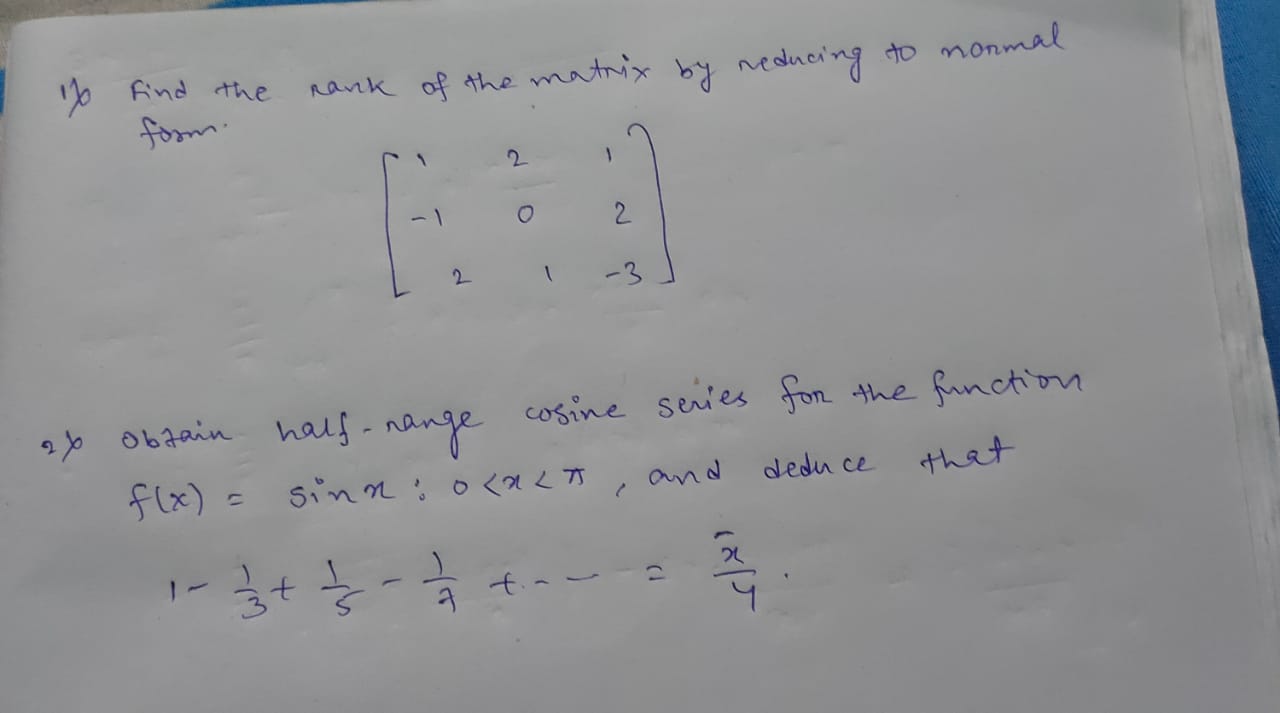 1) Find the rank of the matrix by reducing to normal
form.
1 2 1
-1 0 2
2 1 -3
2) Obtain half-range cosine series for the function
f(x) = sin x : 0<x<π, and deduce that
1 - 1/3 + 1/5 - 1/7 + --- = π/4.